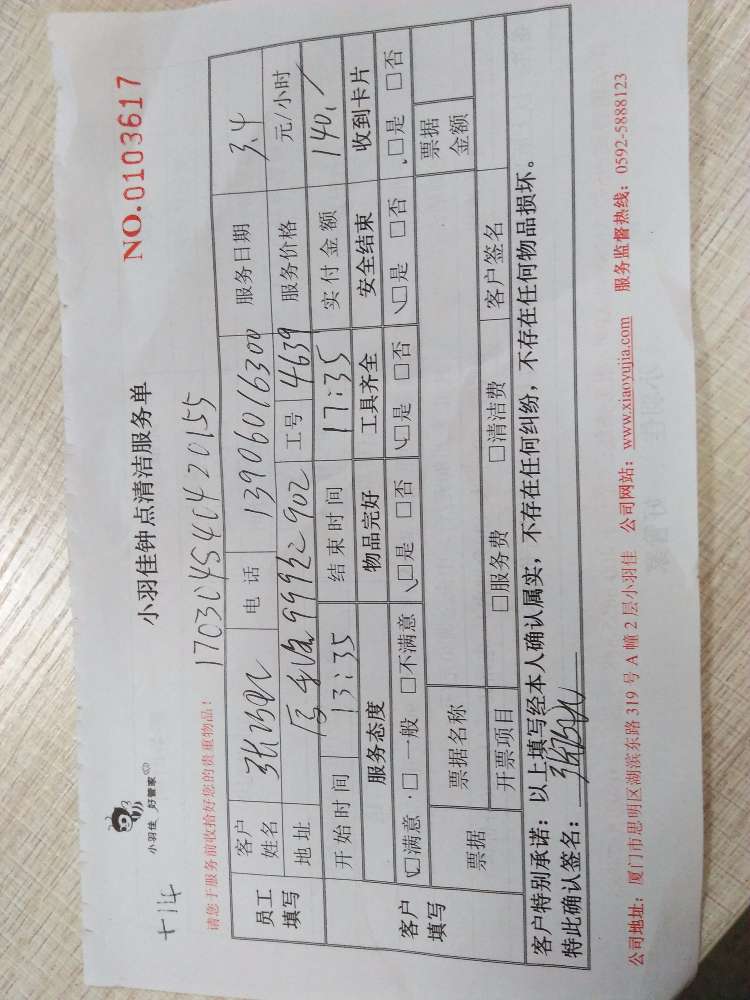 小羽佳 好管家
小羽佳钟点清洁服务单
NO.0103617
请您于服务前收拾好您的贵重物品!
170304540420155
员工填写
客户姓名 电话 13906016300 服务日期 3.4
地址 99号之902 工号 4639 服务价格 元/小时
开始时间 13:35 结束时间 17:35 实付金额 140./
客户填写
服务态度 物品完好 工具齐全 安全结束 收到卡片
☑满意 □一般 □不满意 ☑是 □否 ☑是 □否 ☑是 □否 ☑是 □否
票据 票据名称 票据金额
开票项目 □服务费 □清洁费 客户签名
客户特别承诺:以上填写经本人确认属实,不存在任何纠纷,不存在任何物品损坏。
特此确认签名:
公司地址:厦门市思明区湖滨东路319号A幢2层小羽佳 公司网站:www.xiaoyujia.com 服务监督热线:0592-5888123